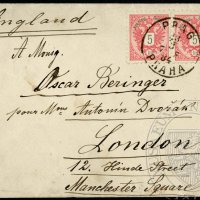 England
A Monsg.
Oscar Beringer
pour Mr. Antonín Dvořák
London
12. Hinde Street
Manchester Square
5
5
PRAG
PRAHA